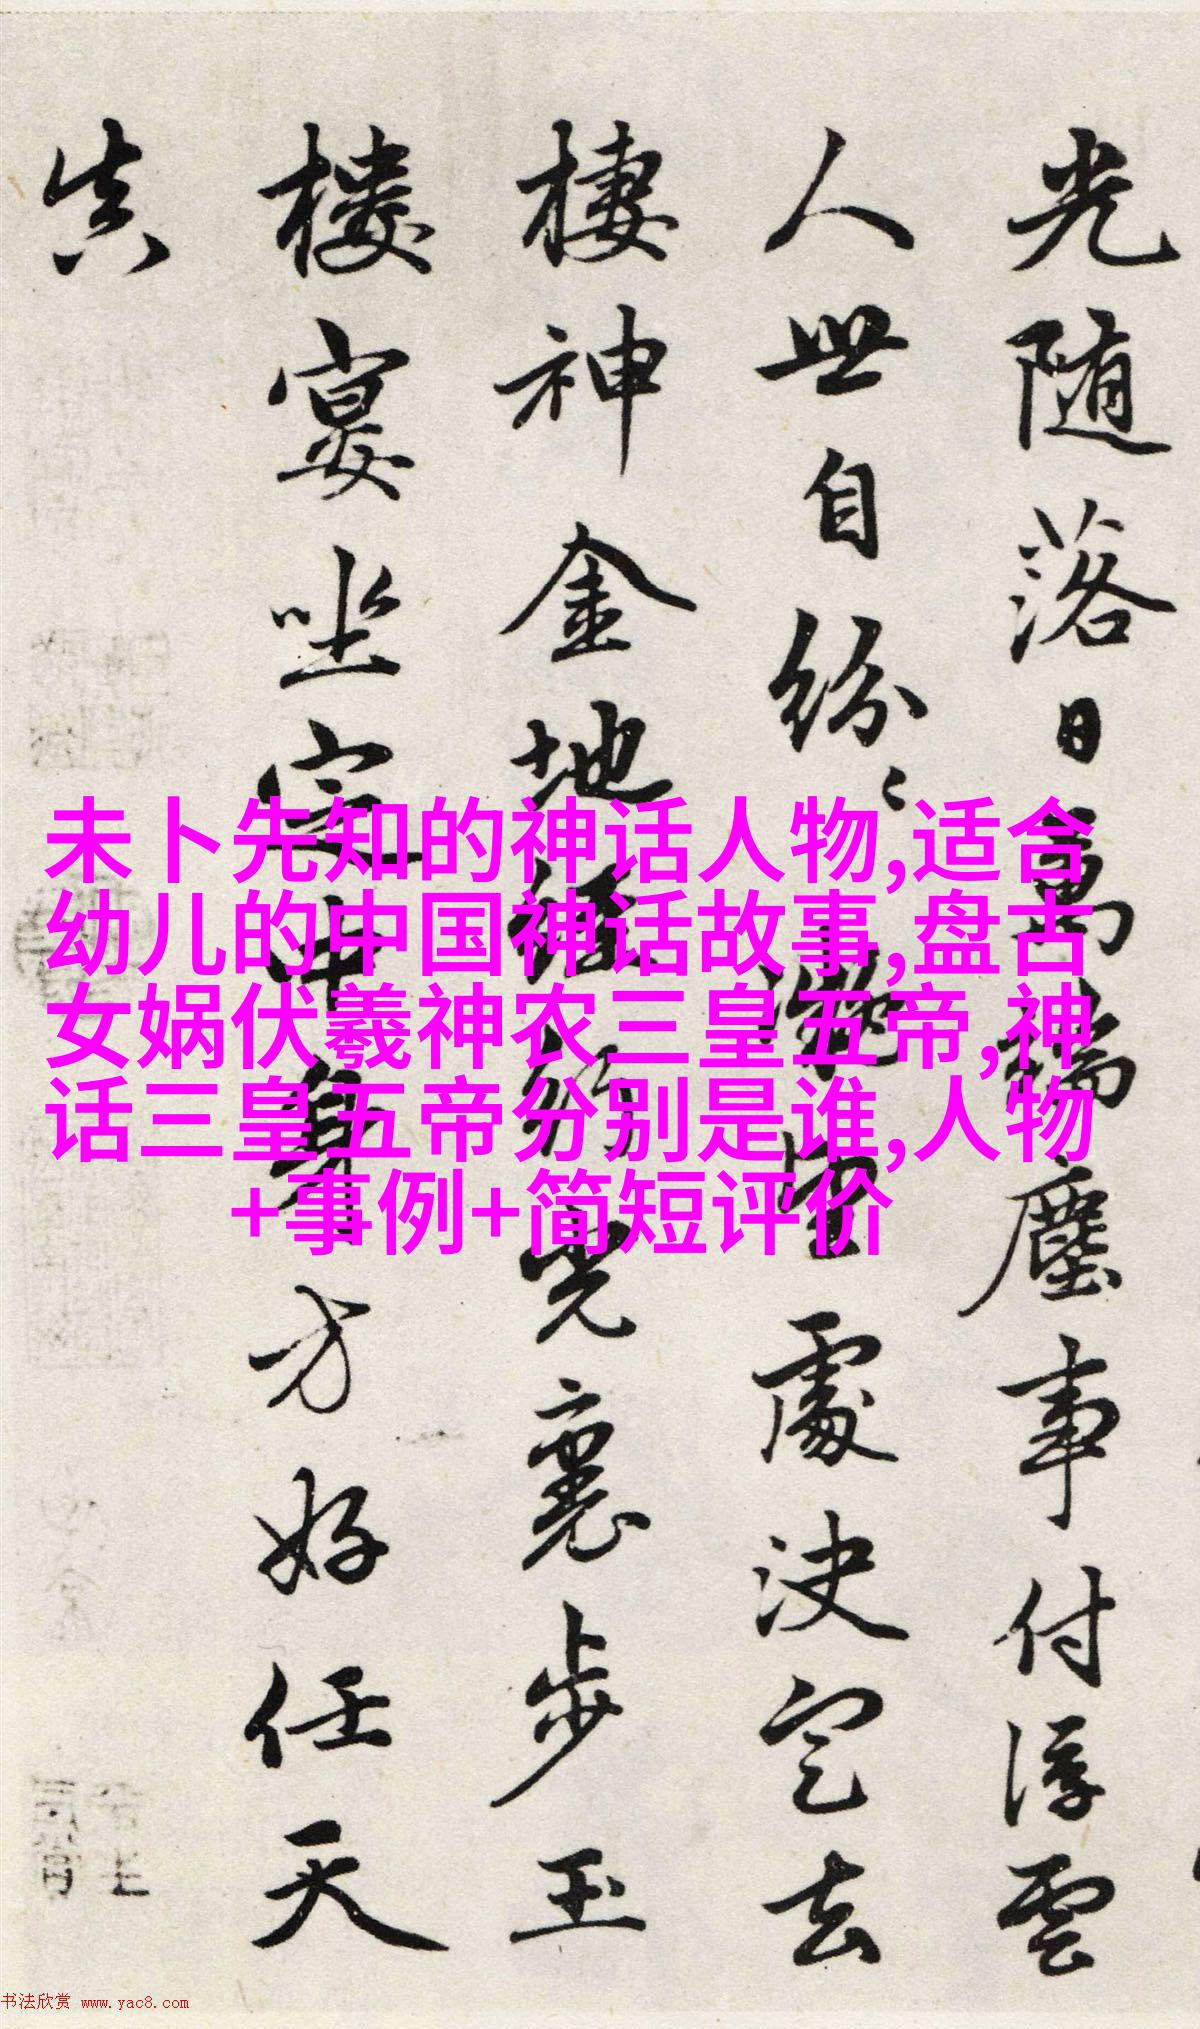 光随落日万端尘事付浮雲
人世自纷〻
处决定去
棲神金地
光裏步玉
楼宴坐定中身方好任天
真
未卜先知的神话人物,适合
幼儿的中国神话故事,盘古
女娲伏羲神农三皇五帝,神
话三皇五帝分别是谁,人物
+事例+简短评价
书法欣赏 www.yac8.com